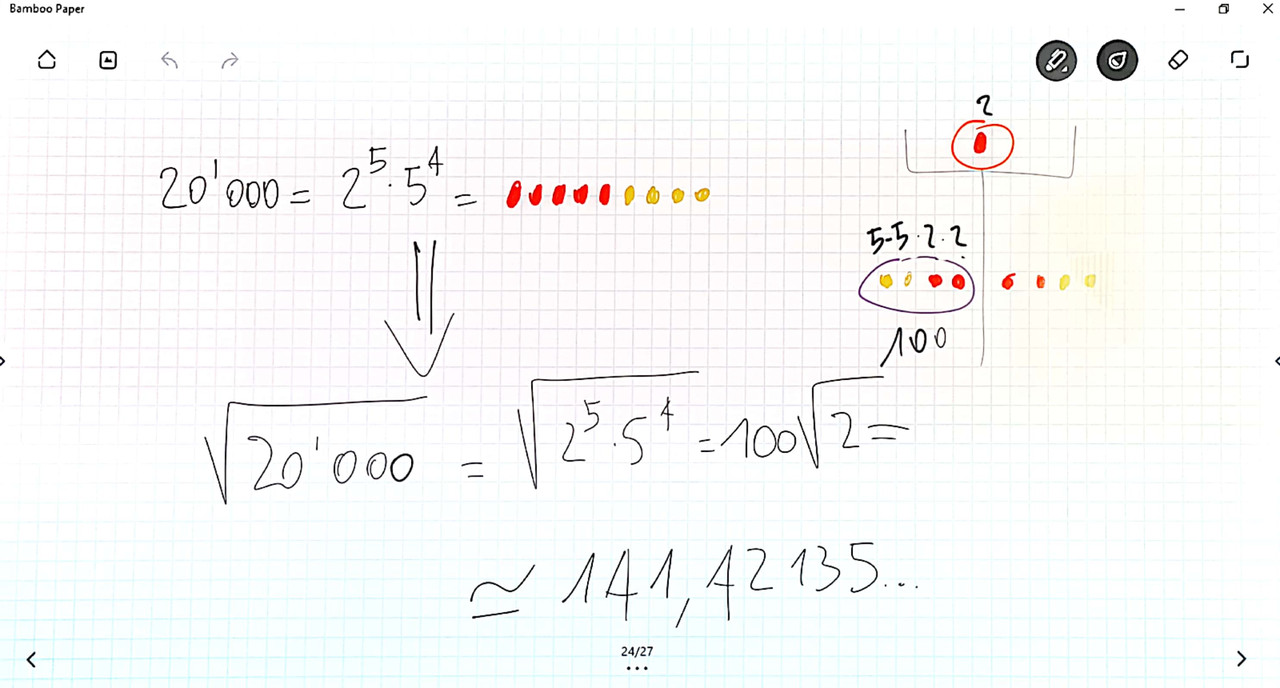 Bamboo Paper
2
20'000 = 2⁵·5⁴ =
5-5·2·2
100
√20'000 = √2⁵·5⁴ = 100√2 =
≃ 141,42135...
24/27